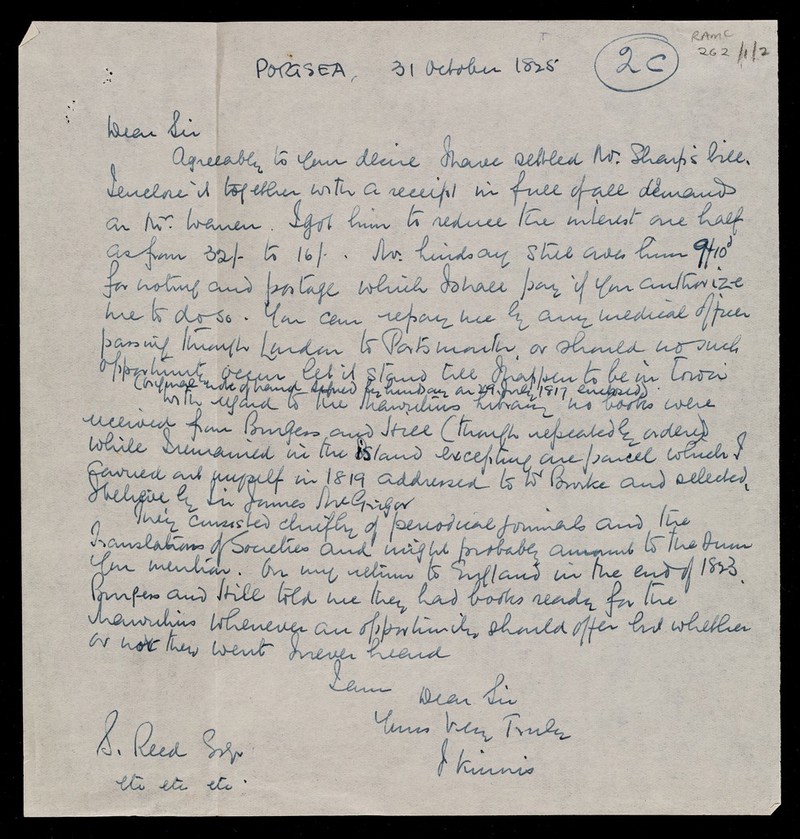 RAMC
262/1/2
2C
PORTSEA, 31 October 1825
Dear Sir
Agreeably to your desire I have settled Mr. Sharp's bill.
I enclose it together with a receipt in full of all demands
on Mr. Warren. I got him to reduce the interest one half
as from 32/- to 16/-. Mr. Lindsay still owes him
for noting and postage which I shall pay if you authorize
me to do so. You can repay me by any medical officer
passing through London to Portsmouth, or should no such
opportunity occur let it stand till I happen to be in town
(original note of hand signed by Lindsay on July 1817 enclosed)
With regard to the Mauritius library no books were
received from Burgess and Hill (though repeatedly ordered)
while I remained in the island excepting one parcel which I
carried out myself in 1819 addressed to Dr Burke and selected,
I believe by Sir James McGrigor
They consisted chiefly of periodical journals and the
Translations of Societies and might probably amount to the sum
you mention. On my return to England in the end of 1823
Burgess and Hill told me they had books ready for the
Mauritius whenever an opportunity should offer but whether
or not they went I never heard
I am Dear Sir
Yours Very Truly
J Kinnis
S. Reed Esqr
etc etc etc.